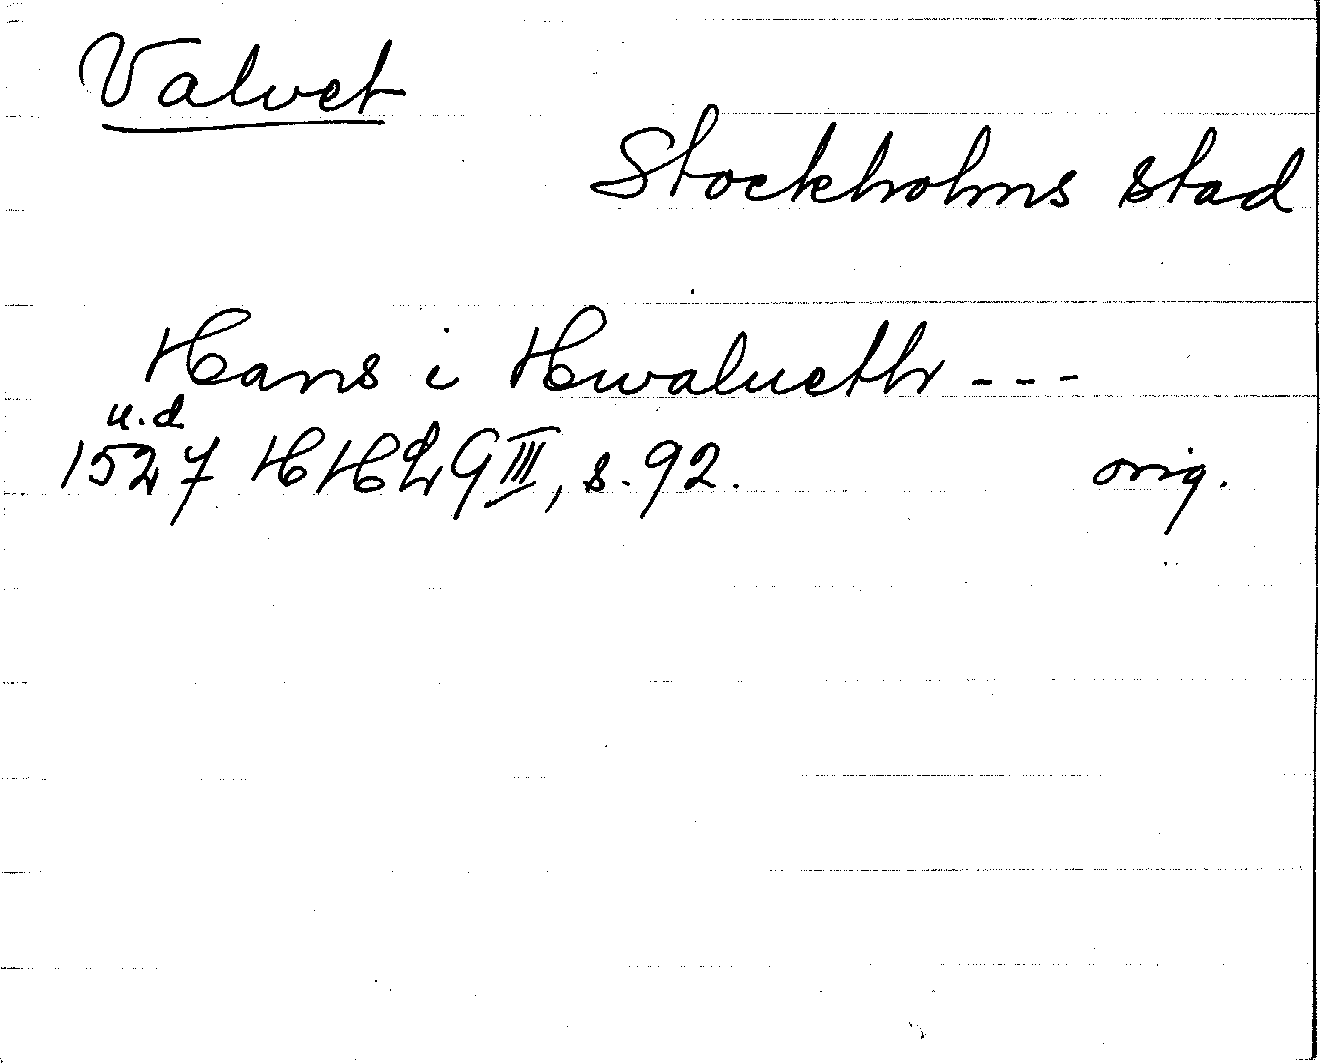 Valvet
Stockholms stad
Hans i Hwalueth ---
u.d
1527 HHL 9 III, s. 92. orig.